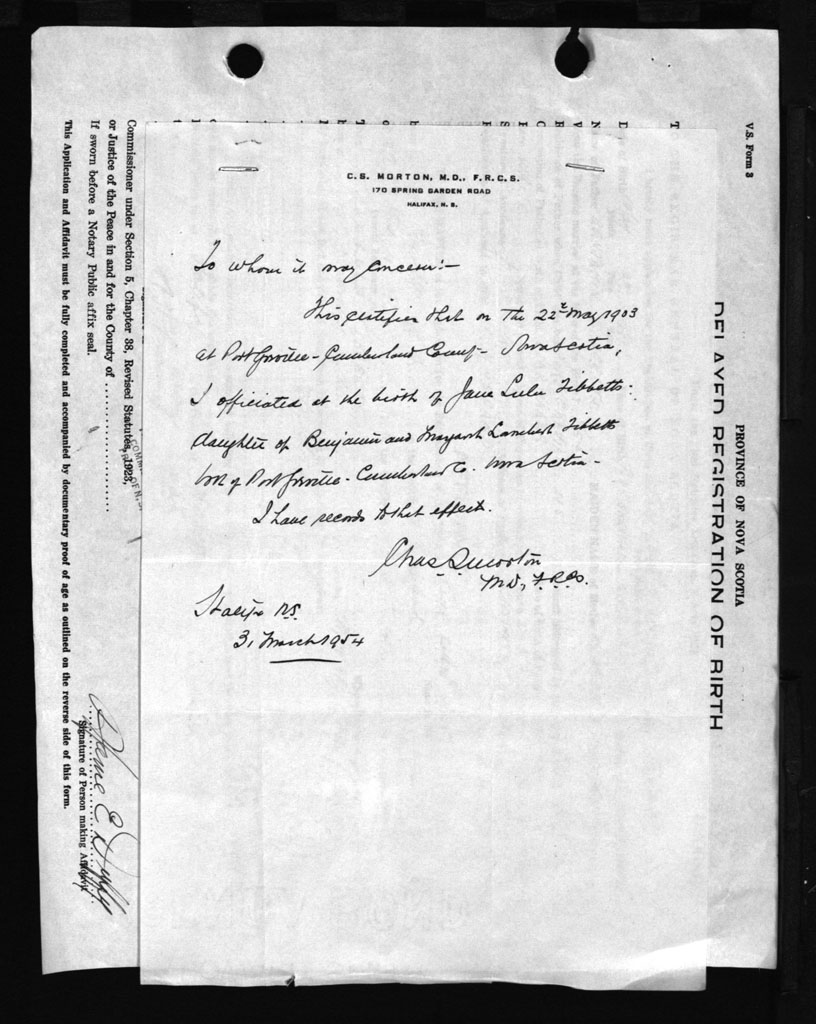 C. S. MORTON, M.D., F.R.C.S.
170 SPRING GARDEN ROAD
HALIFAX, N. S.
To whom it may concern:-
This certifies that on the 22nd May 1903
at Port Greville - Cumberland County - Nova Scotia,
I officiated at the birth of Jane Lulu Tibbetts -
daughter of Benjamin and Margaret Lambert Tibbetts
both of Port Greville - Cumberland Co. Nova Scotia -
I have records to that effect.
Chas S Morton
M.D., F.R.C.S.
Halifax N.S.
31 March 1954
V.S. Form 3
PROVINCE OF NOVA SCOTIA
DELAYED REGISTRATION OF BIRTH
Commissioner under Section 5, Chapter 38, Revised Statutes, 1923,
or Justice of the Peace in and for the County of
If sworn before a Notary Public affix seal.
Signature of Person making Affidavit
This Application and Affidavit must be fully completed and accompanied by documentary proof of age as outlined on the reverse side of this form.